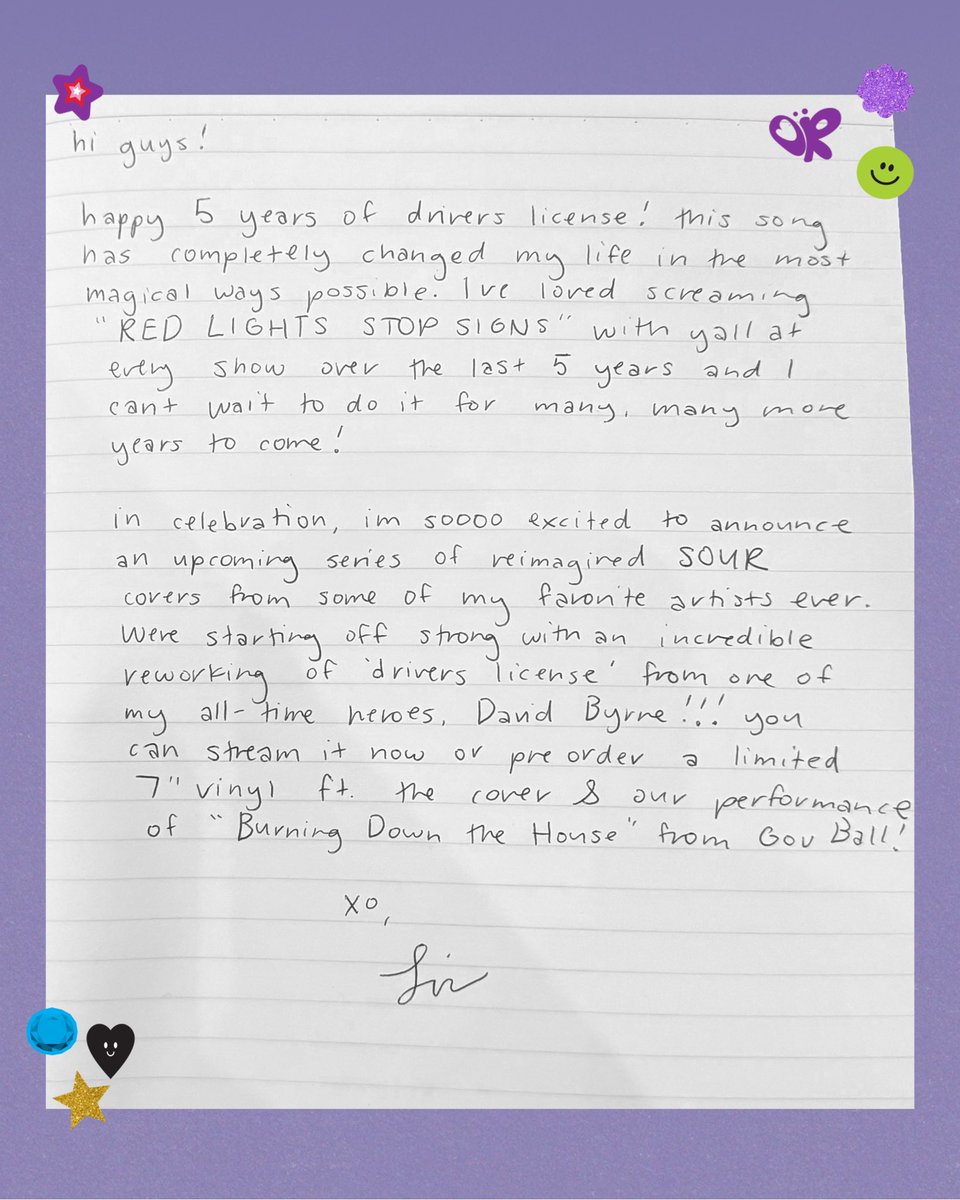 hi guys!
OR
happy 5 years of drivers license! this song
has completely changed my life in the most
magical ways possible. Ive loved screaming
"RED LIGHTS STOP SIGNS" with yall at
every show over the last 5 years and I
cant wait to do it for many, many more
years to come!
in celebration, im soooo excited to announce
an upcoming series of reimagined SOUR
covers from some of my favorite artists ever.
Were starting off strong with an incredible
reworking of 'drivers license' from one of
my all-time heroes, David Byrne!!! you
can stream it now or pre order a limited
7" vinyl ft. the cover & our performance
of "Burning Down the House" from Gov Ball!
xo,
Liv